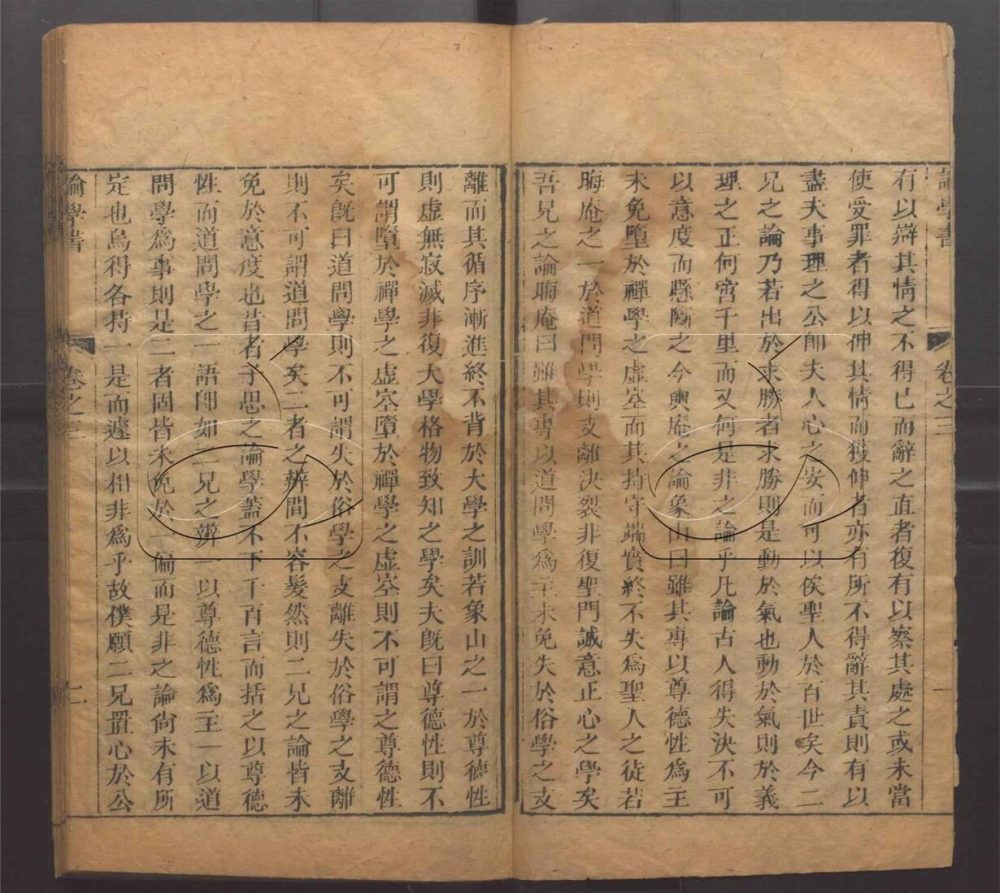 論學書 卷之三 一
有以辯其情之不得已而辭之直者復有以察其處之或未當
使受罪者得以伸其情而獲伸者亦有所不得辭其責則有以
盡夫事理之公卽夫人心之安而可以俟聖人於百世矣今二
兄之論乃若出於求勝者求勝則是動於氣也動於氣則於義
理之正何啻千里而又何是非之論乎凡論古人得失決不可
以意度而懸斷之今輿庵之論象山曰雖其專以尊德性爲主
未免墮於禪學之虛空而其持守端實終不失爲聖人之徒若
晦庵之一於道問學則支離決裂非復聖門誠意正心之學矣
吾兄之論晦庵曰雖其專以道問學爲主未免失於俗學之支
離而其循序漸進終不背於大學之訓若象山之一於尊德性
則虛無寂滅非復大學格物致知之學矣夫旣曰尊德性則不
可謂墮於禪學之虛空墮於禪學之虛空則不可謂之尊德性
矣旣曰道問學則不可謂失於俗學之支離失於俗學之支離
則不可謂道問學矣二者之辨間不容髮然則二兄之論皆未
免於意度也昔者子思之論學蓋不下千百言而括之以尊德
性而道問學之一語卽如二兄之辨一以尊德性爲主一以道
問學爲事則是二者固皆未免於一偏而是非之論尙未有所
定也烏得各持一是而遽以相非爲乎故僕願二兄置心於公
論學書 卷之三 二